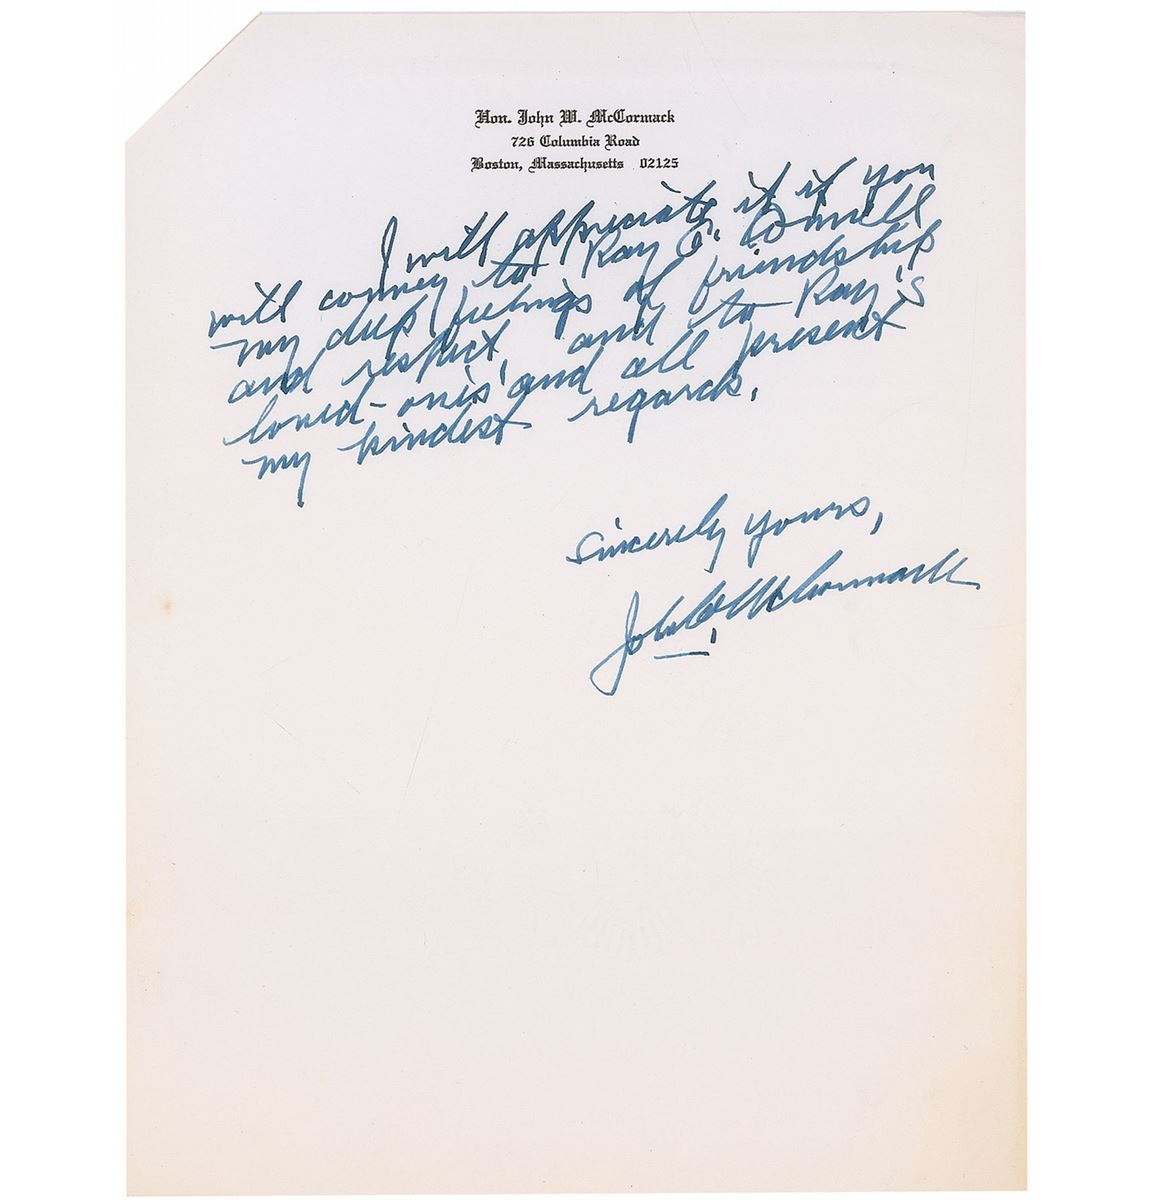 Hon. John W. McCormack
726 Columbia Road
Boston, Massachusetts 02125
I will appreciate it if you
will convey to Ray O'Connell
my deep feelings of friendship
and respect, and to Ray's
loved-ones and all present
my kindest regards.
Sincerely yours,
John W. McCormack